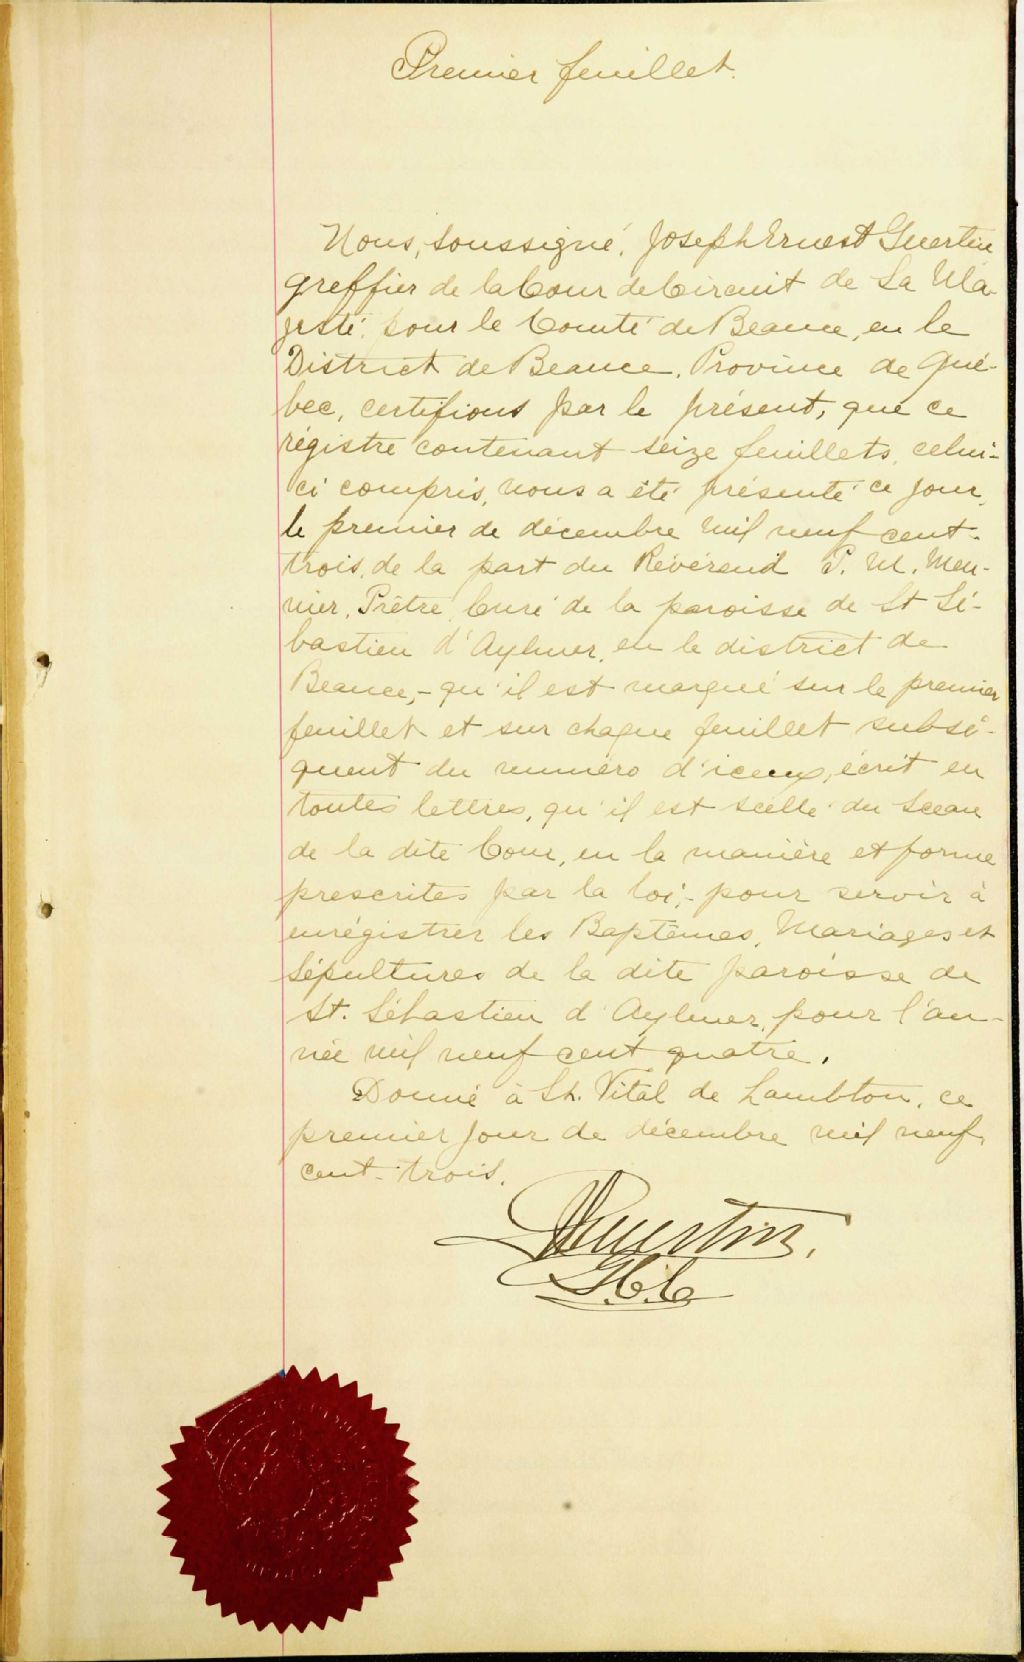 Premier feuillet.
Nous, soussigné, Joseph Ernest Guertin
greffier de la Cour de Circuit de Sa Ma-
jesté, pour le Comté de Beauce, en le
District de Beauce, Province de Qué-
bec, certifions par le présent, que ce
régistre contenant seize feuillets, celui-
ci compris, nous a été présenté ce jour,
le premier de décembre mil neuf cent-
trois, de la part du Révérend P. M. Meu-
nier, Prêtre, Curé de la paroisse de St Sé-
bastien d'Aylmer, en le district de
Beauce,- qu'il est marqué sur le premier
feuillet et sur chaque feuillet subsé-
quent du numéro d'iceux, écrit en
toutes lettres, qu'il est scellé du Sceau
de la dite Cour, en la manière et forme
prescrites par la loi;- pour servir à
enrégistrer les Baptêmes, Mariages et
Sépultures de la dite paroisse de
St. Sébastien d'Aylmer, pour l'an-
née mil neuf cent quatre.
Donné à St. Vital de Lambton, ce
premier jour de décembre mil neuf
cent-trois.
Guertin.
G.C.C